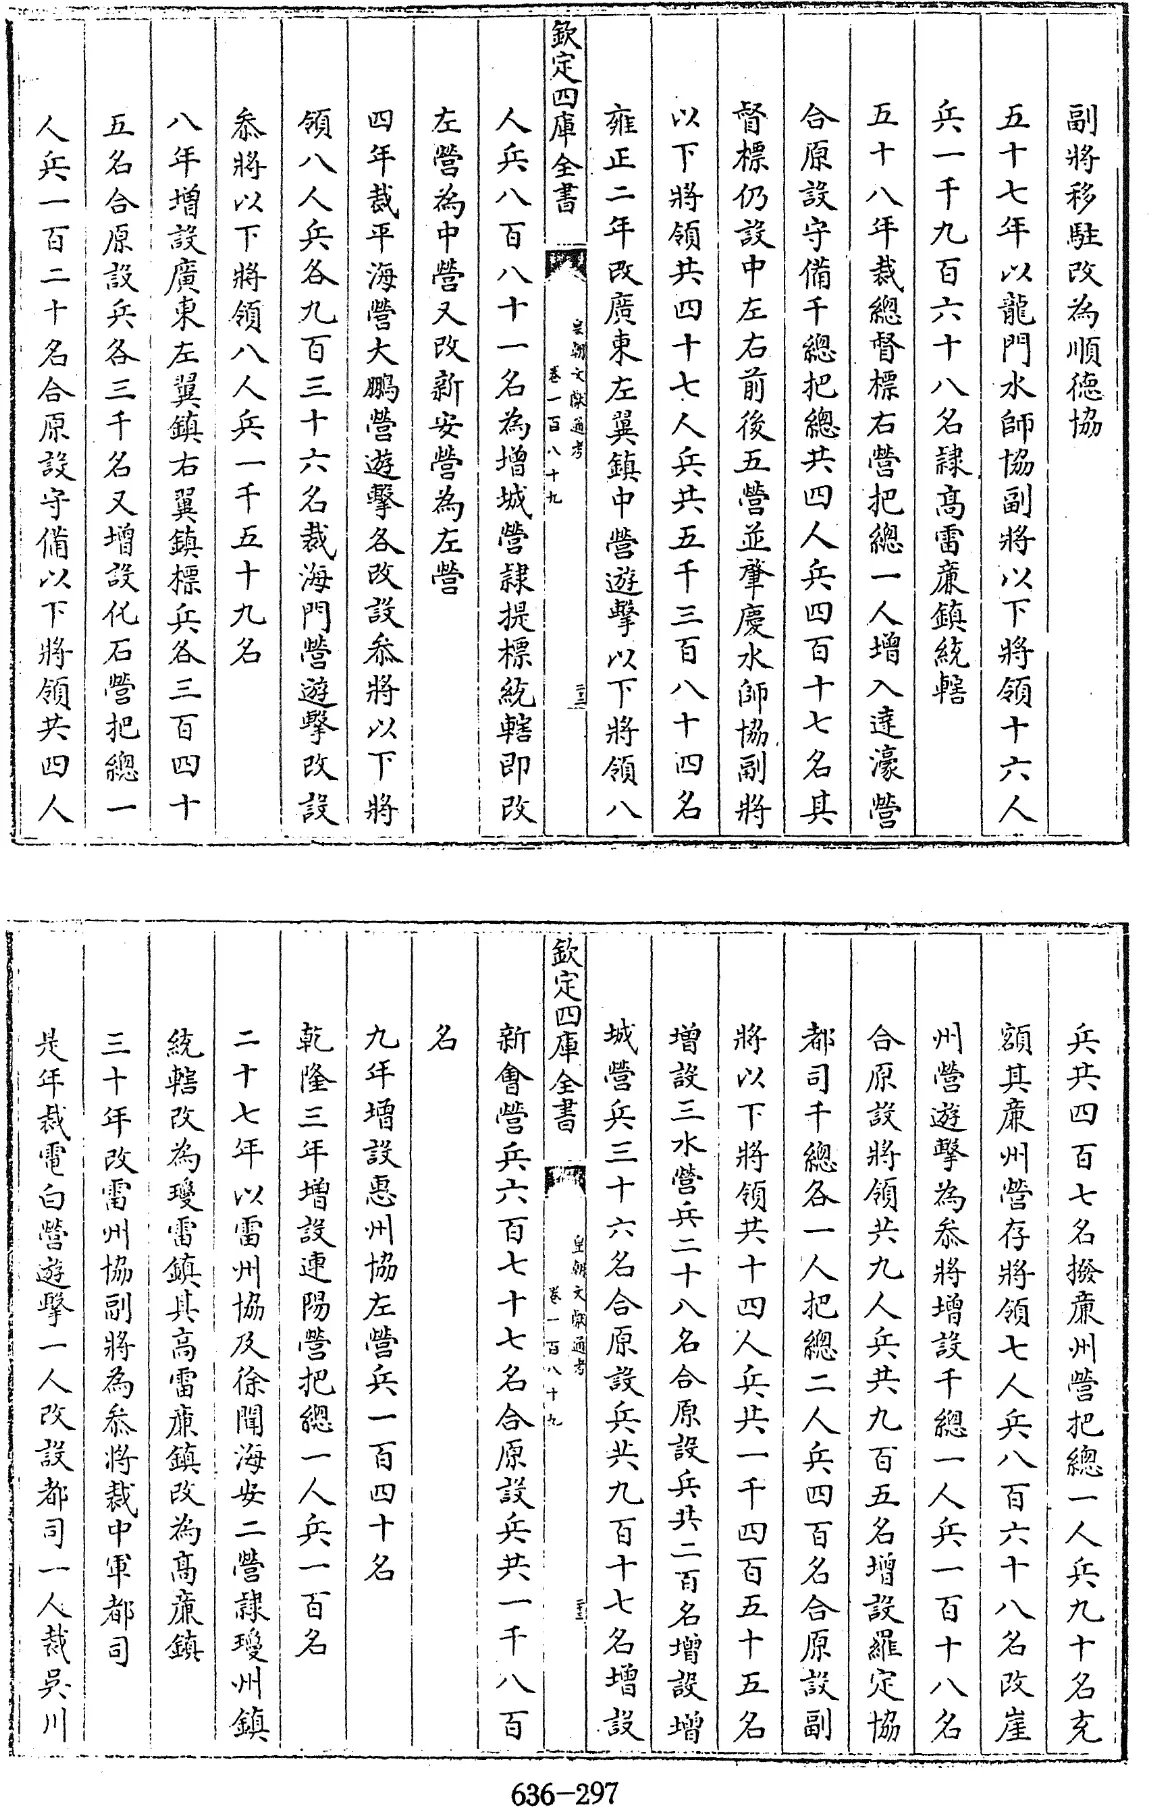 副將移駐改為順德協
五十七年以龍門水師協副將以下將領十六人
兵一千九百六十八名隷髙雷亷鎮統轄
五十八年裁總督標右營把總一人增入達濠營
合原設守備千總把總共四人兵四百十七名其
督標仍設中左右前後五營並肇慶水師協副將
以下將領共四十七人兵共五千三百八十四名
雍正二年改廣東左翼鎮中營遊擊以下將領八
欽定四庫全書
皇朝文獻通考
卷一百八十九
人兵八百八十一名為增城營隷提標統轄即改
左營為中營又改新安營為左營
四年裁平海營大鵬營遊擊各改設叅將以下將
領八人兵各九百三十六名裁海門營遊擊改設
叅將以下將領八人兵一千五十九名
八年增設廣東左翼鎮右翼鎮標兵各三百四十
五名合原設兵各三千名又增設化石營把總一
人兵一百二十名合原設守備以下將領共四人
兵共四百七名撥亷州營把總一人兵九十名充
額其亷州營存將領七人兵八百六十八名改崖
州營遊擊為叅將增設千總一人兵一百十八名
合原設將領共九人兵共九百五名增設羅定協
都司千總各一人把總二人兵四百名合原設副
將以下將領共十四人兵共一千四百五十五名
增設三水營兵二十八名合原設兵共二百名增設增
城營兵三十六名合原設兵共九百十七名增設
欽定四庫全書
皇朝文獻通考
卷一百八十九
新會營兵六百七十七名合原設兵共一千八百
名
九年增設惠州協左營兵一百四十名
乾隆三年增設連陽營把總一人兵一百名
二十七年以雷州協及徐聞海安二營隷瓊州鎮
統轄改為瓊雷鎮其高雷亷鎮改為髙亷鎮
三十年改雷州協副將為叅將裁中軍都司
是年裁電白營遊擊一人改設都司一人裁吳川
636-297